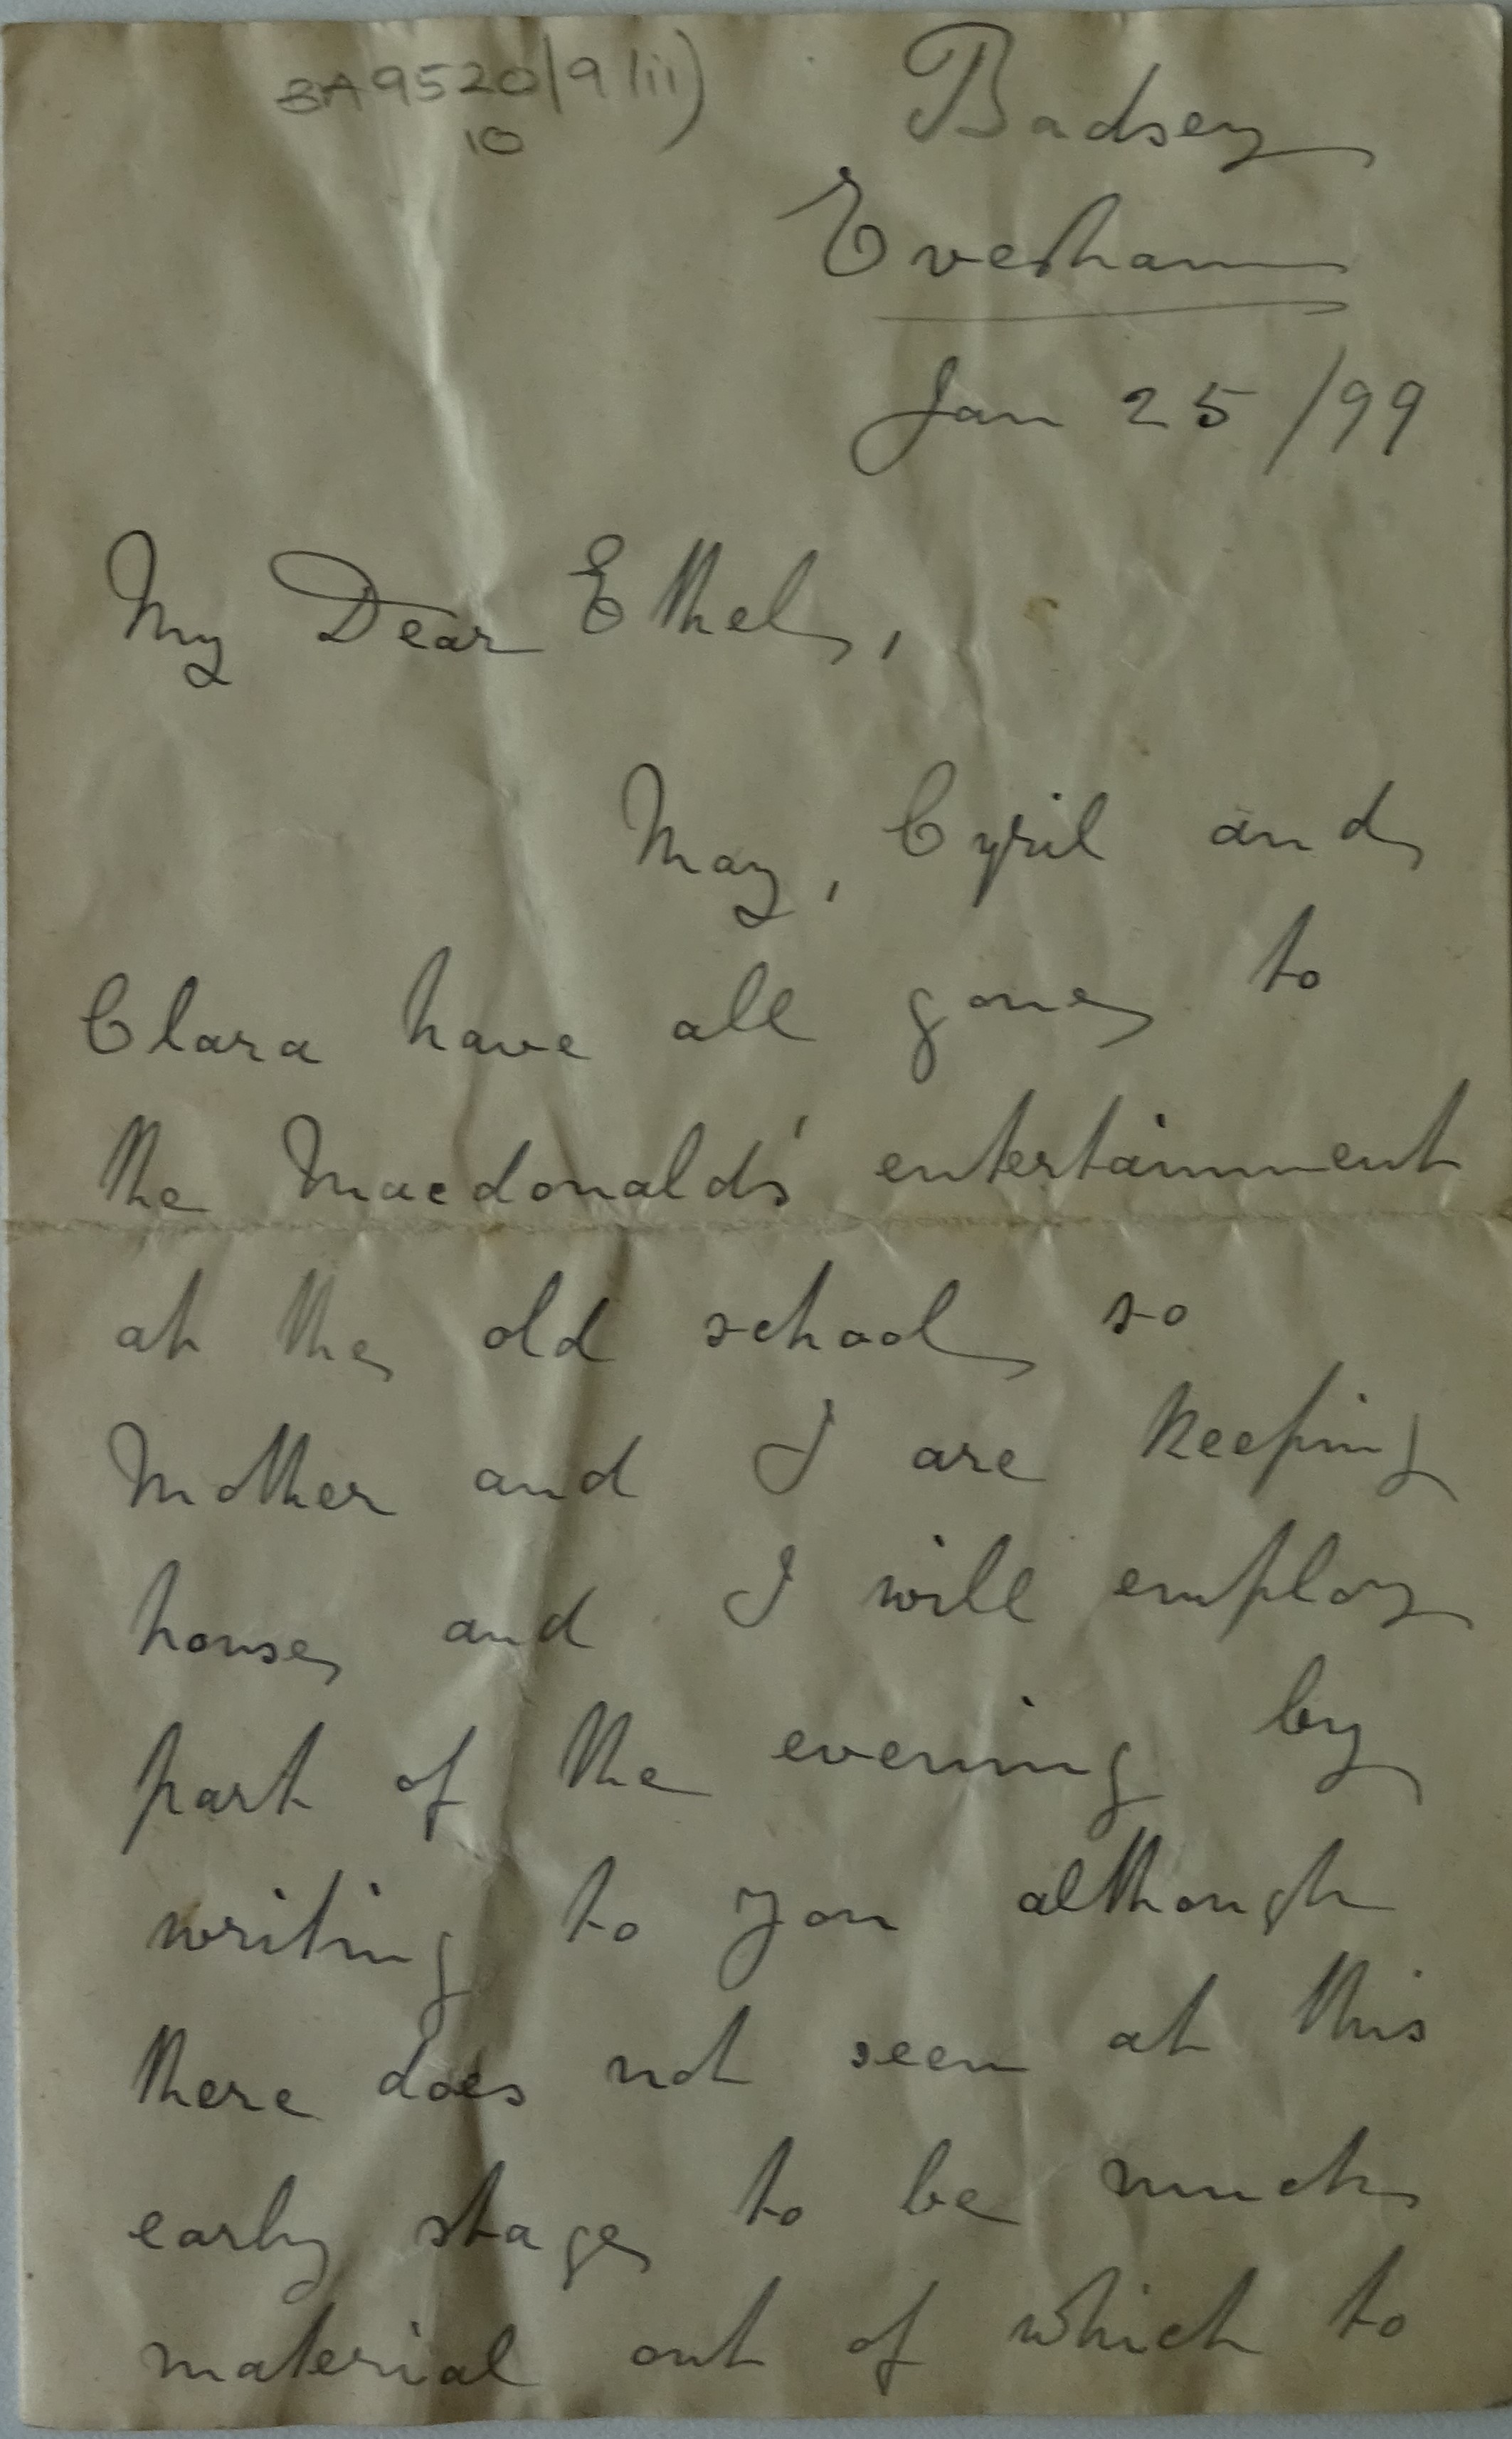 BA9520/9(ii)
10
Badsey
Evesham
Jan 25/99
My Dear Ethel,
May, Cyril and
Clara have all gone to
the Macdonalds' entertainment
at the old school so
Mother and I are keeping
house and I will employ
part of the evening by
writing to you although
there does not seem at this
early stage to be much
material out of which to